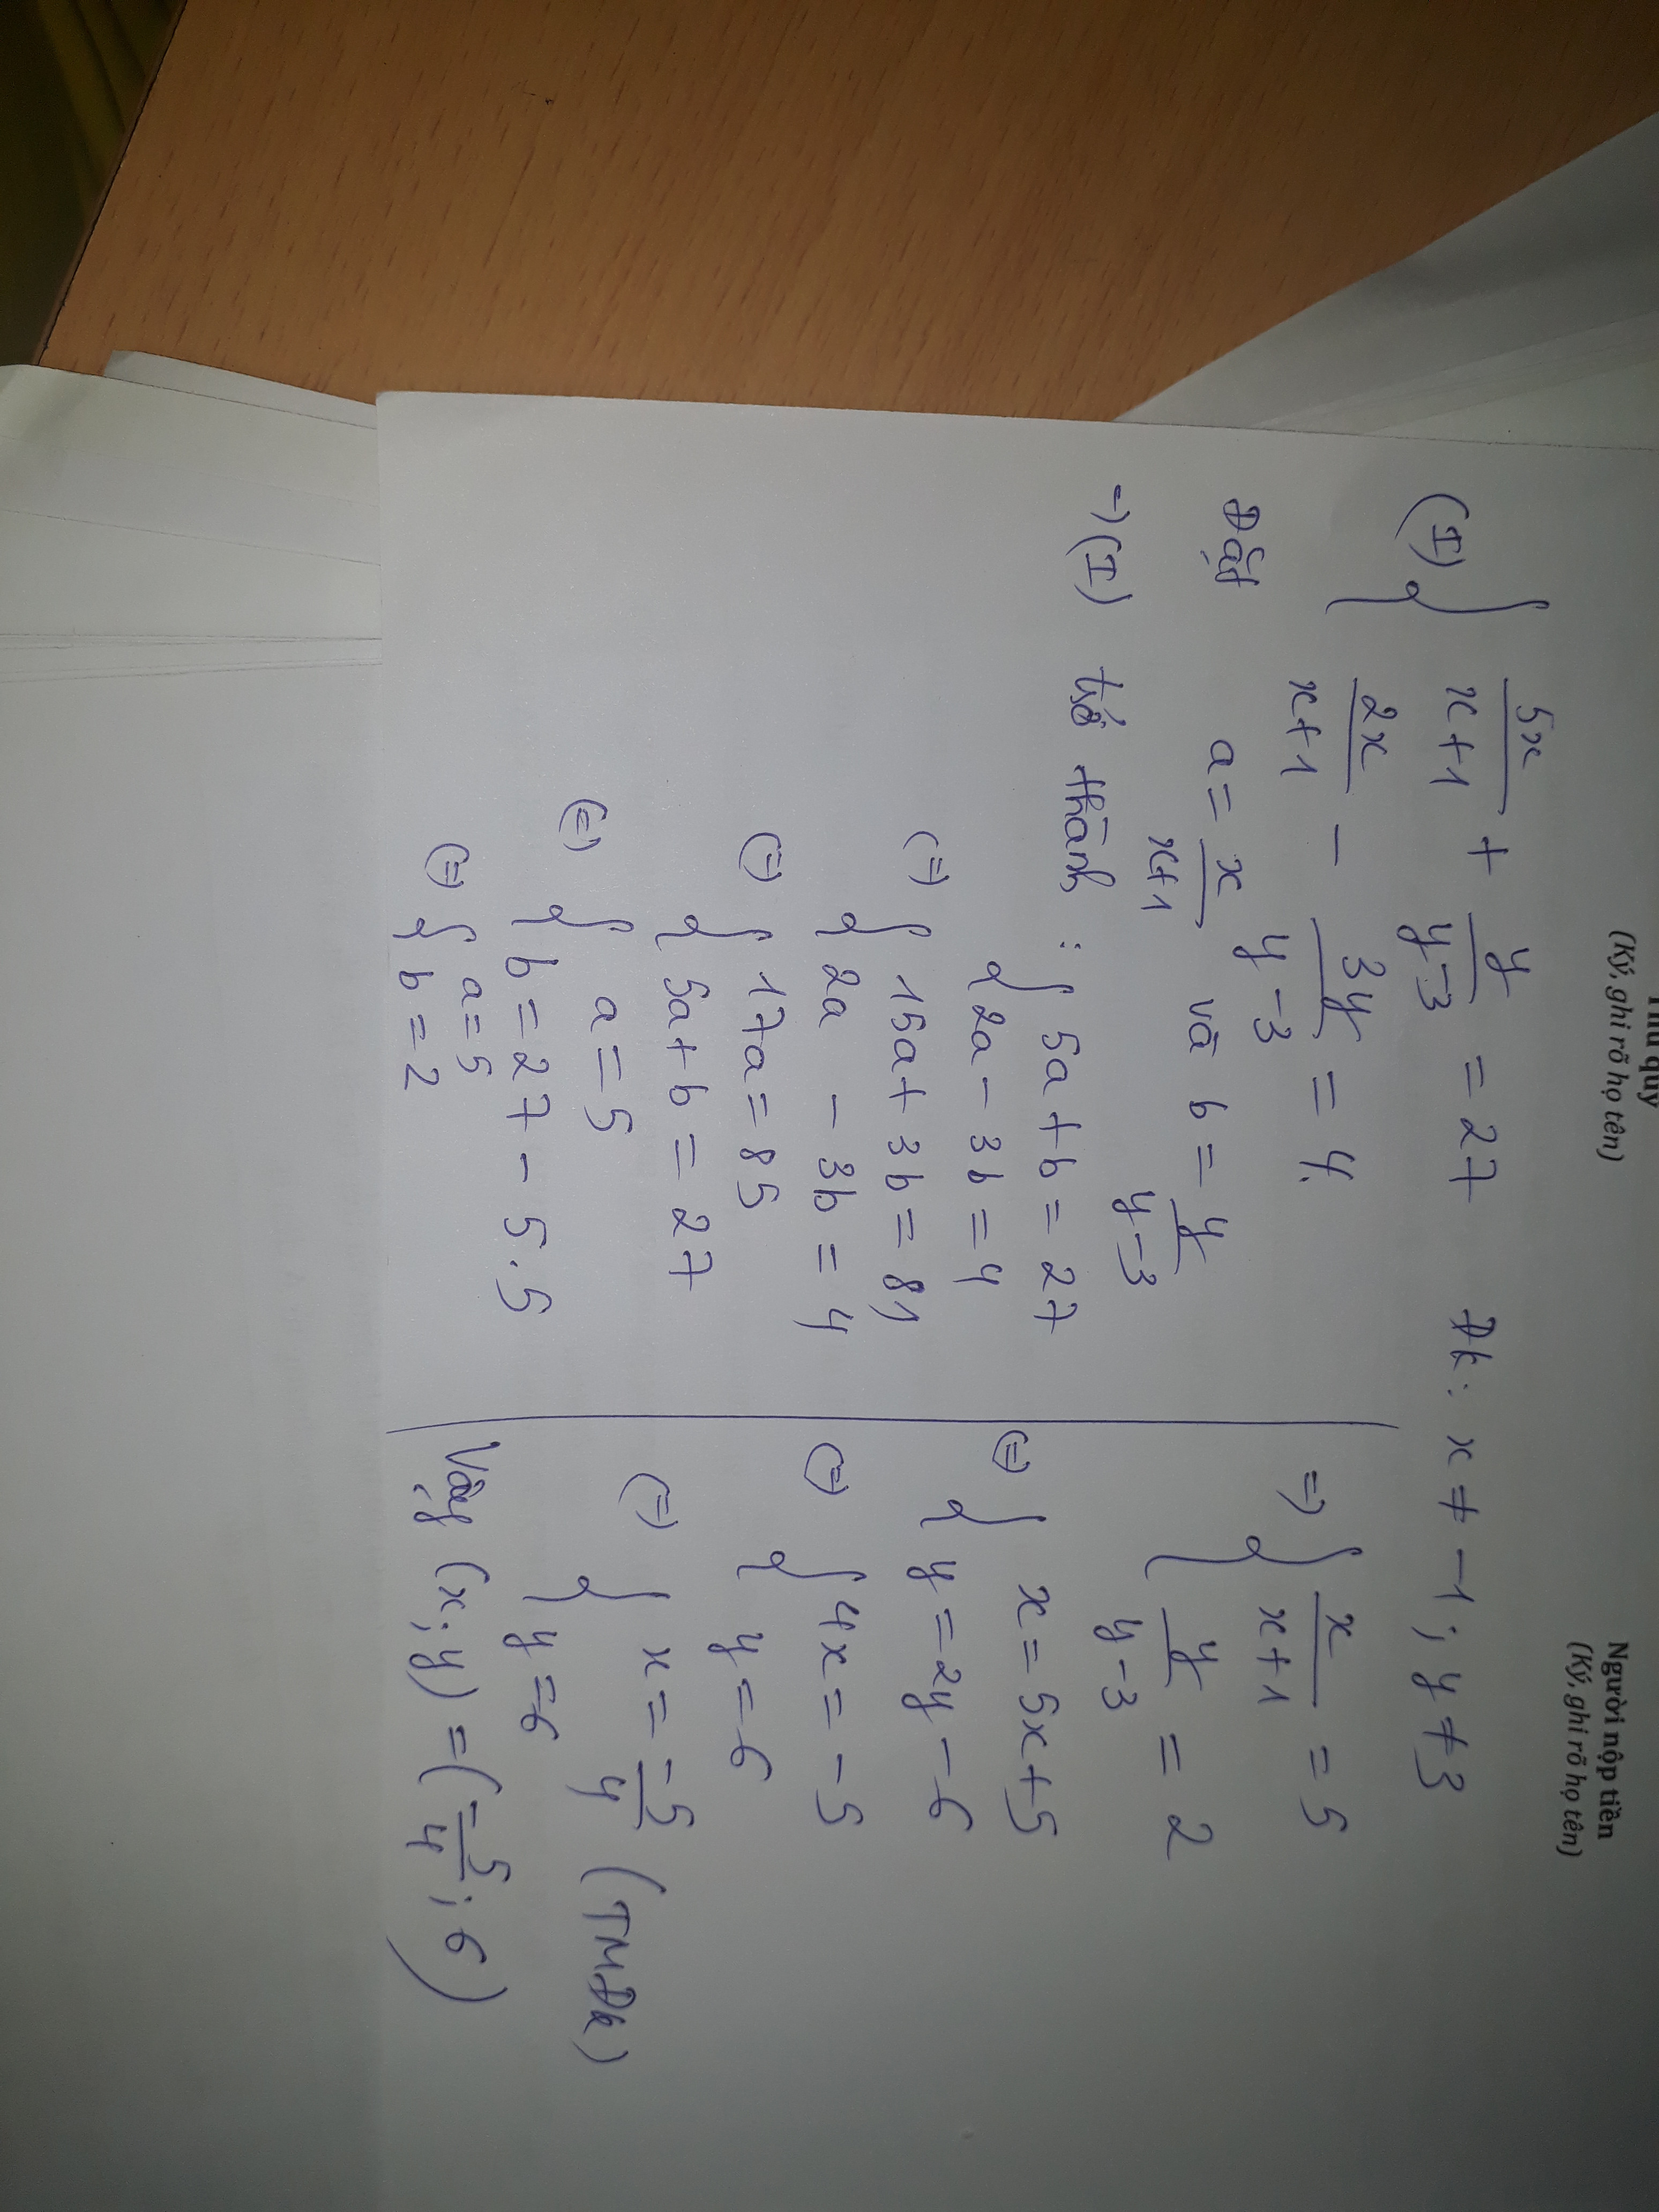 Thủ quỹ
(Ký, ghi rõ họ tên)
Người nộp tiền
(Ký, ghi rõ họ tên)
(I) { 5x/(x+1) + y/(y-3) = 27 Đk: x ≠ -1; y ≠ 3
2x/(x+1) - 3y/(y-3) = 4.
Đặt a = x/(x+1) và b = y/(y-3)
=> (I) trở thành: { 5a + b = 27
2a - 3b = 4
<=> { 15a + 3b = 81
2a - 3b = 4
<=> { 17a = 85
5a + b = 27
<=> { a = 5
b = 27 - 5.5
<=> { a = 5
b = 2
=> { x/(x+1) = 5
y/(y-3) = 2
<=> { x = 5x + 5
y = 2y - 6
<=> { 4x = -5
y = 6
<=> { x = -5/4 (TMĐk)
y = 6
Vậy (x; y) = (-5/4; 6)